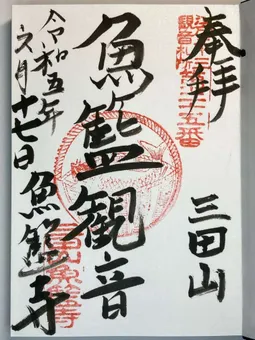 奉拝
江戸三十三
観音札所第二十五番
三田山
魚籃観音
三田山魚籃寺
令和五年
六月十七日
魚籃寺